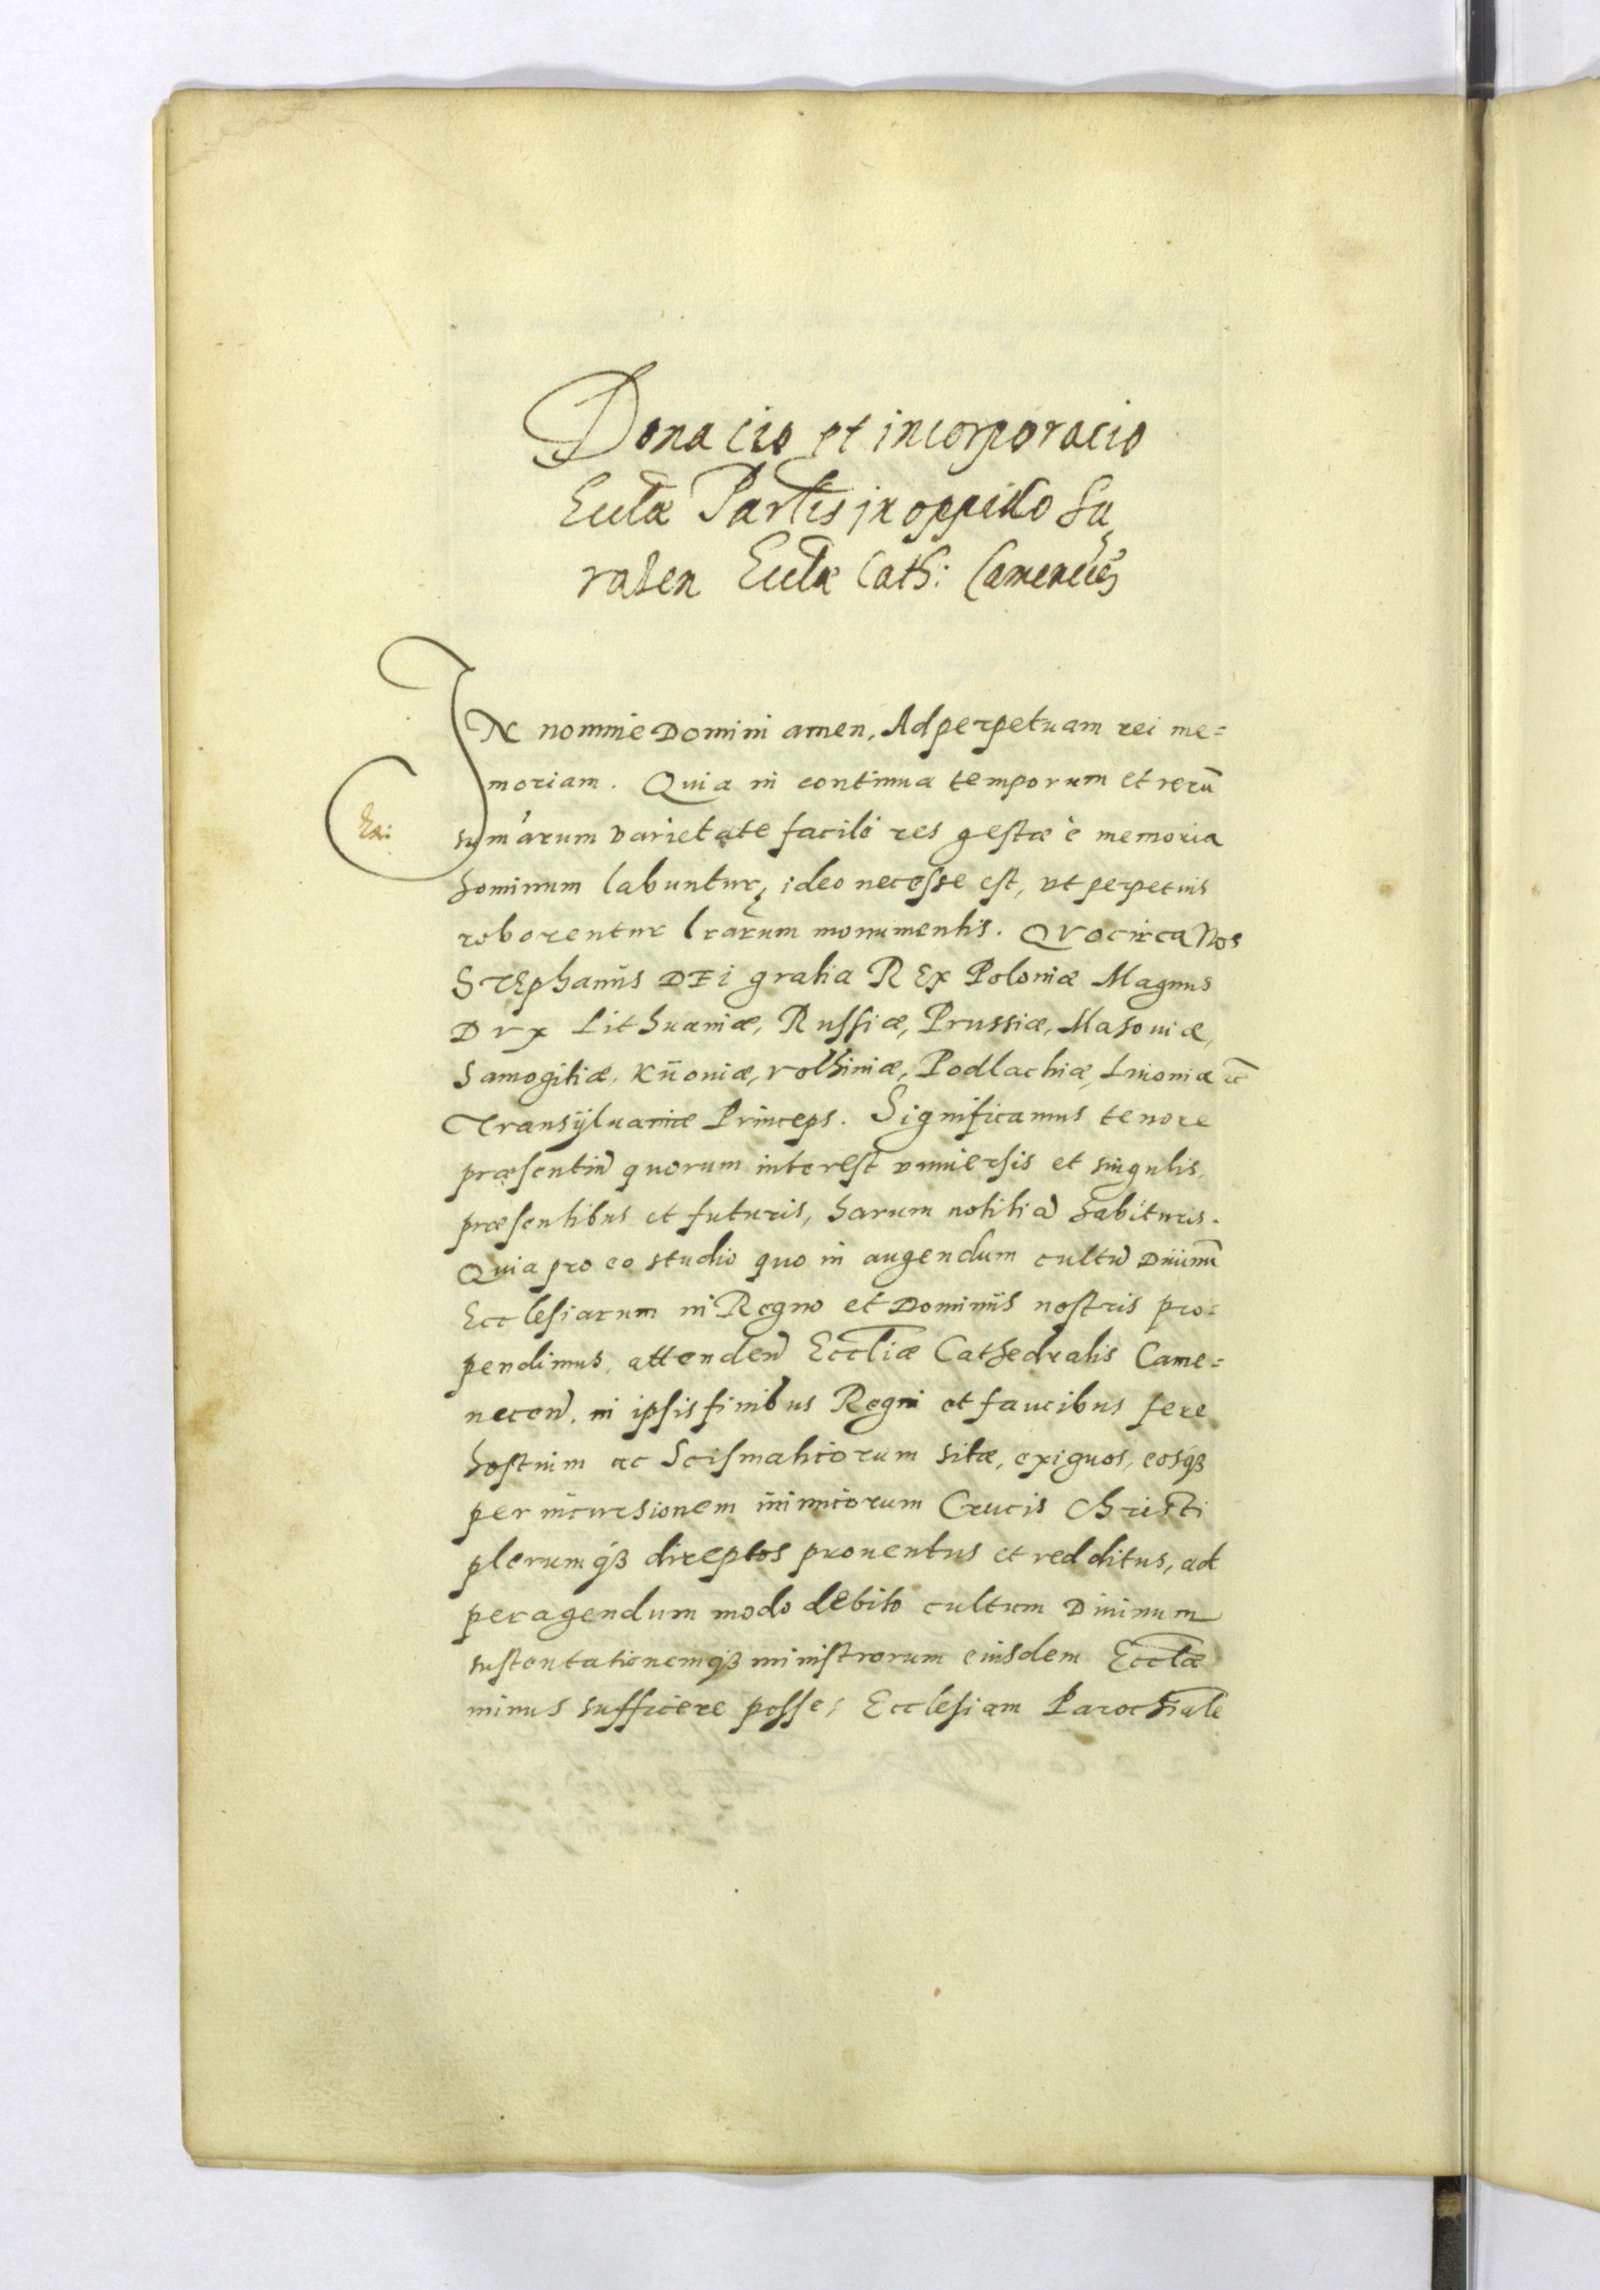 Donacio et incorporacio
Eccłæ Partis in oppido Su
raden Eccłæ Cath: Camenecēn
IN nomine Domini amen, Ad perpetuam rei me=
moriam. Quia in continua temporum et rerū
Ex:
sumārum varietate facile res gestæ è memoria
hominum labuntur, ideo necesse est, vt perpetuis
roborentur lrārum monumentis. QVocirca Nos
STEphanus DEi gratia REx Poloniæ Magnus
DVx Lithuaniæ, Russiæ, Prussiæ, Masouiæ,
Samogitiæ, Kiioniæ, Volhiniæ, Podlachiæ, Liuoniæ ēc
Transÿluaniæ Princeps. Significamus tenore
præsentiū quorum interest vniuersis et singulis,
præsentibus et futuris, harum notitiā habituris.
Quia pro eo studio quo in augendum cultū Diuinū
Ecclesiarum in Regno et Dominiis nostris pro=
pendimus, attenden̄ Ecclīæ Cathedralis Came=
necen̄. in ipsis finibus Regni et faucibus fere
hostium ac Scismaticorum sitæ, exiguos, eosq́ꝫ
per incursionem inimicorum Crucis Christi
plerumq́ꝫ direptos prouentus et redditus, ad
peragendum modo debito cultum Diuinum
sustentationemq́ꝫ ministrorum eiusdem Ecclæ
minus sufficere posse, Ecclesiam Parochiale